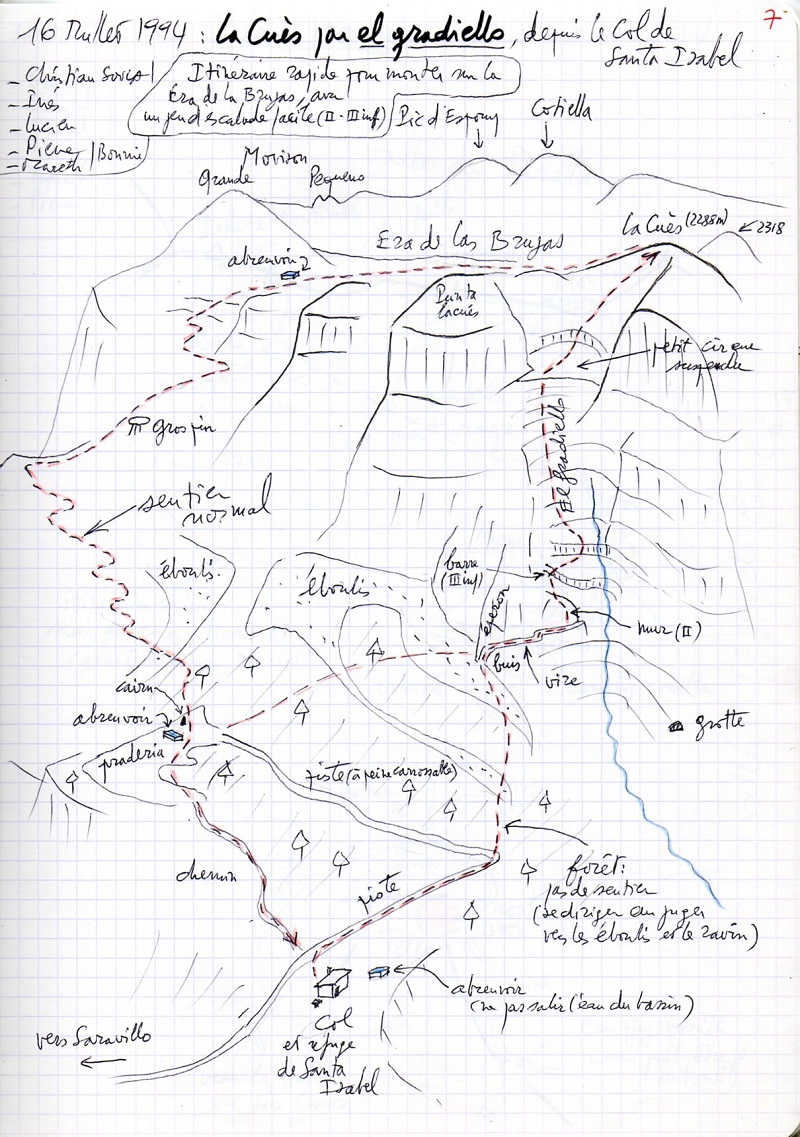 7
16 Juillet 1994 : La Cuès par el gradiello, depuis le Col de
Santa Izabel
_ Christian
_ Inés
_ Lucien
_ Pierre
Itinéraire rapide pour monter sur la
Éra de la Brujas, avec
un peu d'escalade facile (II - III inf)
Pic d'Espouy
Cotiella
Movison
Grande
Pequeno
La Cuès (2288m)
2318
Era de las Brujas
abreuvoir
Punta
Lacués
petit cirque
suspendu
gros pin
El gradiello
sentier
normal
éboulis
éboulis
barre
(III inf)
éperon
mur (II)
buis
vire
cairn
abreuvoir
grotte
praderia
piste (à peine carrossable)
chemin
piste
forêt:
pas de sentier
(se diriger au juger
vers les éboulis et le ravin)
abreuvoir
(ne pas salir l'eau du bassin)
Col
et refuge
de Santa
Izabel
vers Saravillo